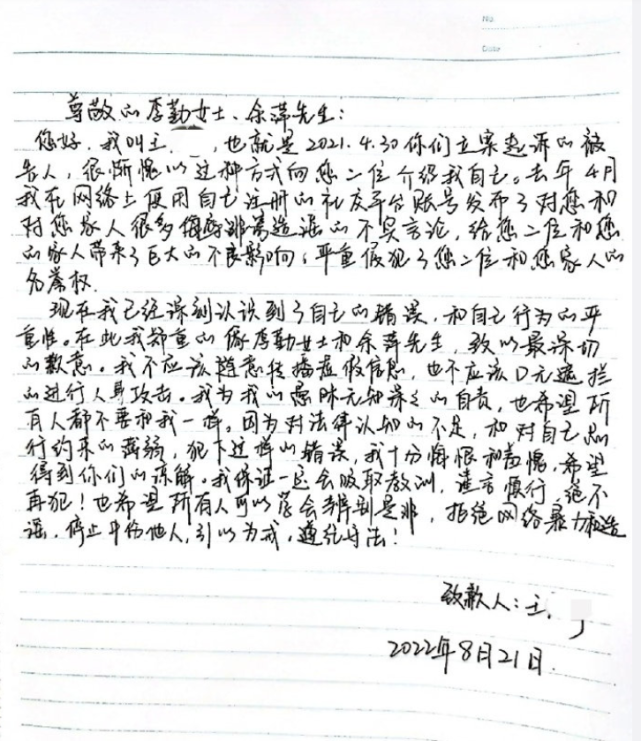 No
Date
尊敬的李勤女士、余萍先生：
您好，我叫王，也就是2021.4.30你们立案起诉的被
告人，很惭愧以这种方式向您二位介绍我自己。去年4月
我在网络上使用自己注册的社交平台账号发布了对您和
对您家人很多侮辱诽谤造谣的不实言论，给您二位和您
的家人带来了巨大的不良影响，严重侵犯了您二位和您家人的
名誉权.
现在我已经深刻认识到了自己的错误，和自己行为的严
重性。在此我郑重的像李勤女士和余萍先生，致以最深切
的歉意。我不应该随意传播虚假信息，也不应该口无遮拦
的进行人身攻击。我为我的愚昧无知深深的自责，也希望所
有人都不要和我一样。因为对法律认知的不足，和对自己品
行约束的薄弱，犯下这样的错误，我十分悔恨和羞愧，希望
得到你们的谅解。我保证一定会吸取教训，谨言慎行，绝不
再犯！也希望所有人可以学会辨别是非，拒绝网络暴力和造
谣，停止中伤他人，引以为戒，遵纪守法！
致歉人：王
2022年8月21日.